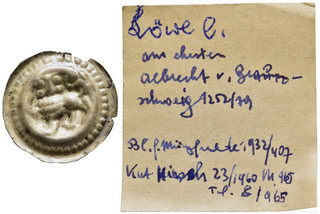 Löwe l.
am ehesten
Albrecht v. Braun-
schweig 1252/79
Bl. f. Münzfreunde 1932/407
Kat Hirsch 23/1960 Nr. 965
Tf. 8/965